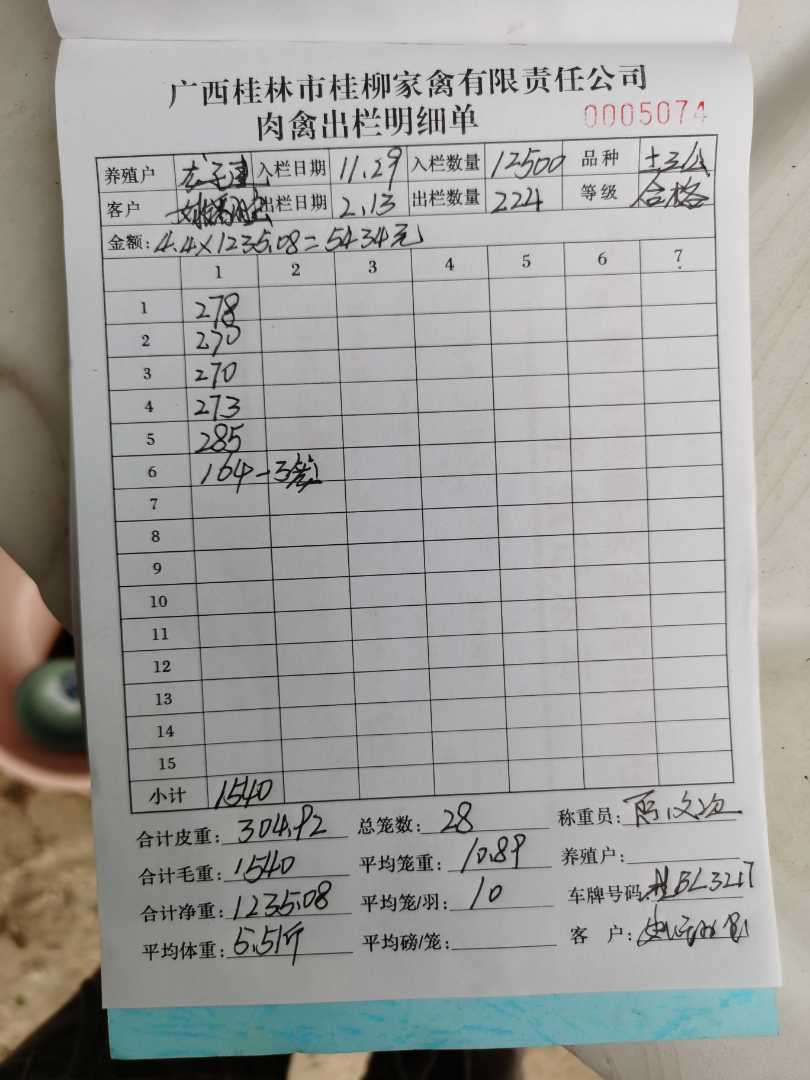 广西桂林市桂柳家禽有限责任公司
肉禽出栏明细单 0005074
养殖户 入栏日期 11.29 入栏数量 12500 品种 土三公
客户 出栏日期 2.13 出栏数量 224 等级 合格
金额: 4.4×1235.08=5434元
1 2 3 4 5 6 7
1 278
2 270
3 270
4 273
5 285
6 164-3笼
7
8
9
10
11
12
13
14
15
小计 1540
合计皮重: 304.92 总笼数: 28 称重员:
合计毛重: 1540 平均笼重: 10.89 养殖户:
合计净重: 1235.08 平均笼/羽: 10 车牌号码:
平均体重: 5.51斤 平均磅/笼: 客 户: